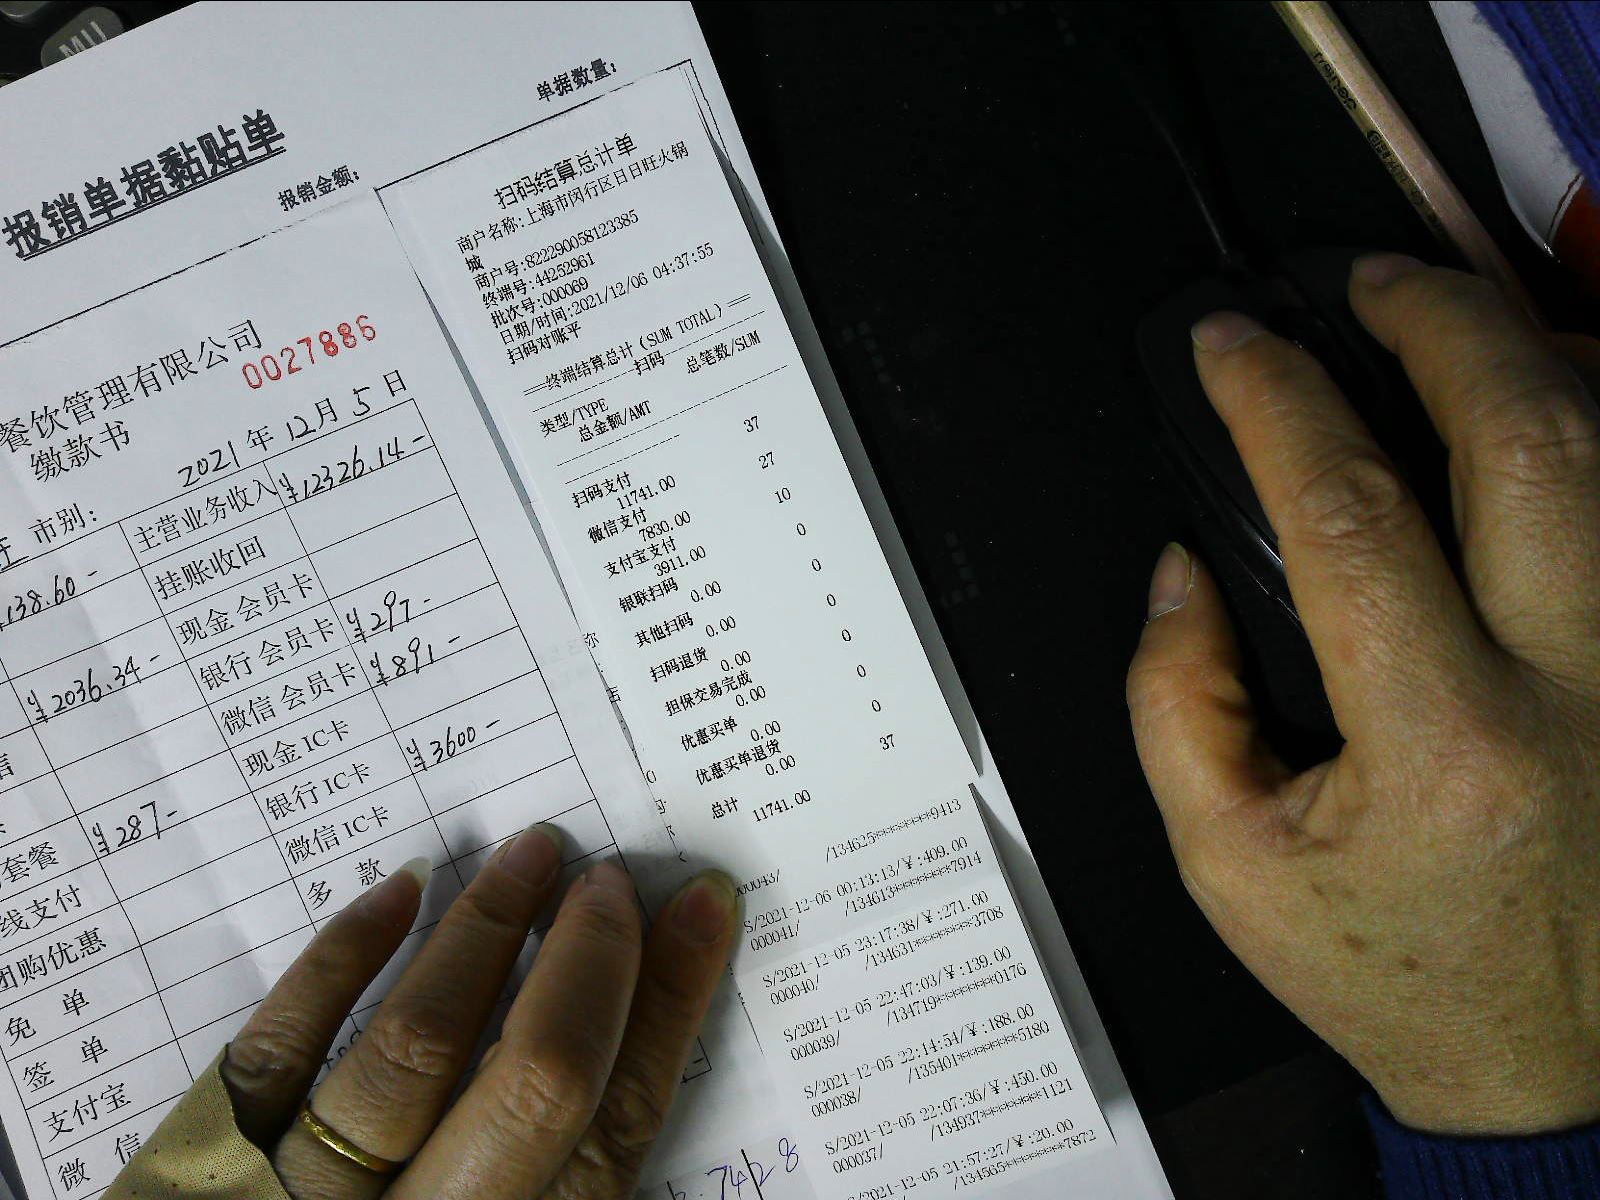 MU
报销单据黏贴单
报销金额:
单据数量:
餐饮管理有限公司
0027886
缴款书
2021年12月5日
市别:
主营业务收入 ¥12326.14-
138.60-
挂账收回
现金会员卡
¥2036.34-
银行会员卡 ¥297-
微信会员卡 ¥891-
现金IC卡
¥287-
银行IC卡 ¥3600-
套餐
微信IC卡
线支付
多 款
团购优惠
免 单
签 单
支付宝
微 信
扫码结算总计单
商户名称:上海市闵行区日日旺火锅
城
商户号:822290058123385
终端号:44252961
批次号:000069
日期/时间:2021/12/06 04:37:55
扫码对账平
==终端结算总计(SUM TOTAL)==
扫码
类型/TYPE 总笔数/SUM
总金额/AMT
扫码支付 37
11741.00
微信支付 27
7830.00
支付宝支付 10
3911.00
银联扫码 0
0.00
其他扫码 0
0.00
扫码退货 0
0.00
担保交易完成 0
0.00
优惠买单 0
0.00
优惠买单退货 0
0.00
总计 37
11741.00
/134625*******9413
000043/
S/2021-12-06 00:13:13/¥:409.00
000041/ /134613*******7914
S/2021-12-05 23:17:38/¥:271.00
000040/ /134631*******3708
S/2021-12-05 22:47:03/¥:139.00
000039/ /134719*******0176
S/2021-12-05 22:14:54/¥:188.00
000038/ /135401*******5180
S/2021-12-05 22:07:36/¥:450.00
000037/ /134937*******1121
S/2021-12-05 21:57:27/¥:20.00
/134565*******7872